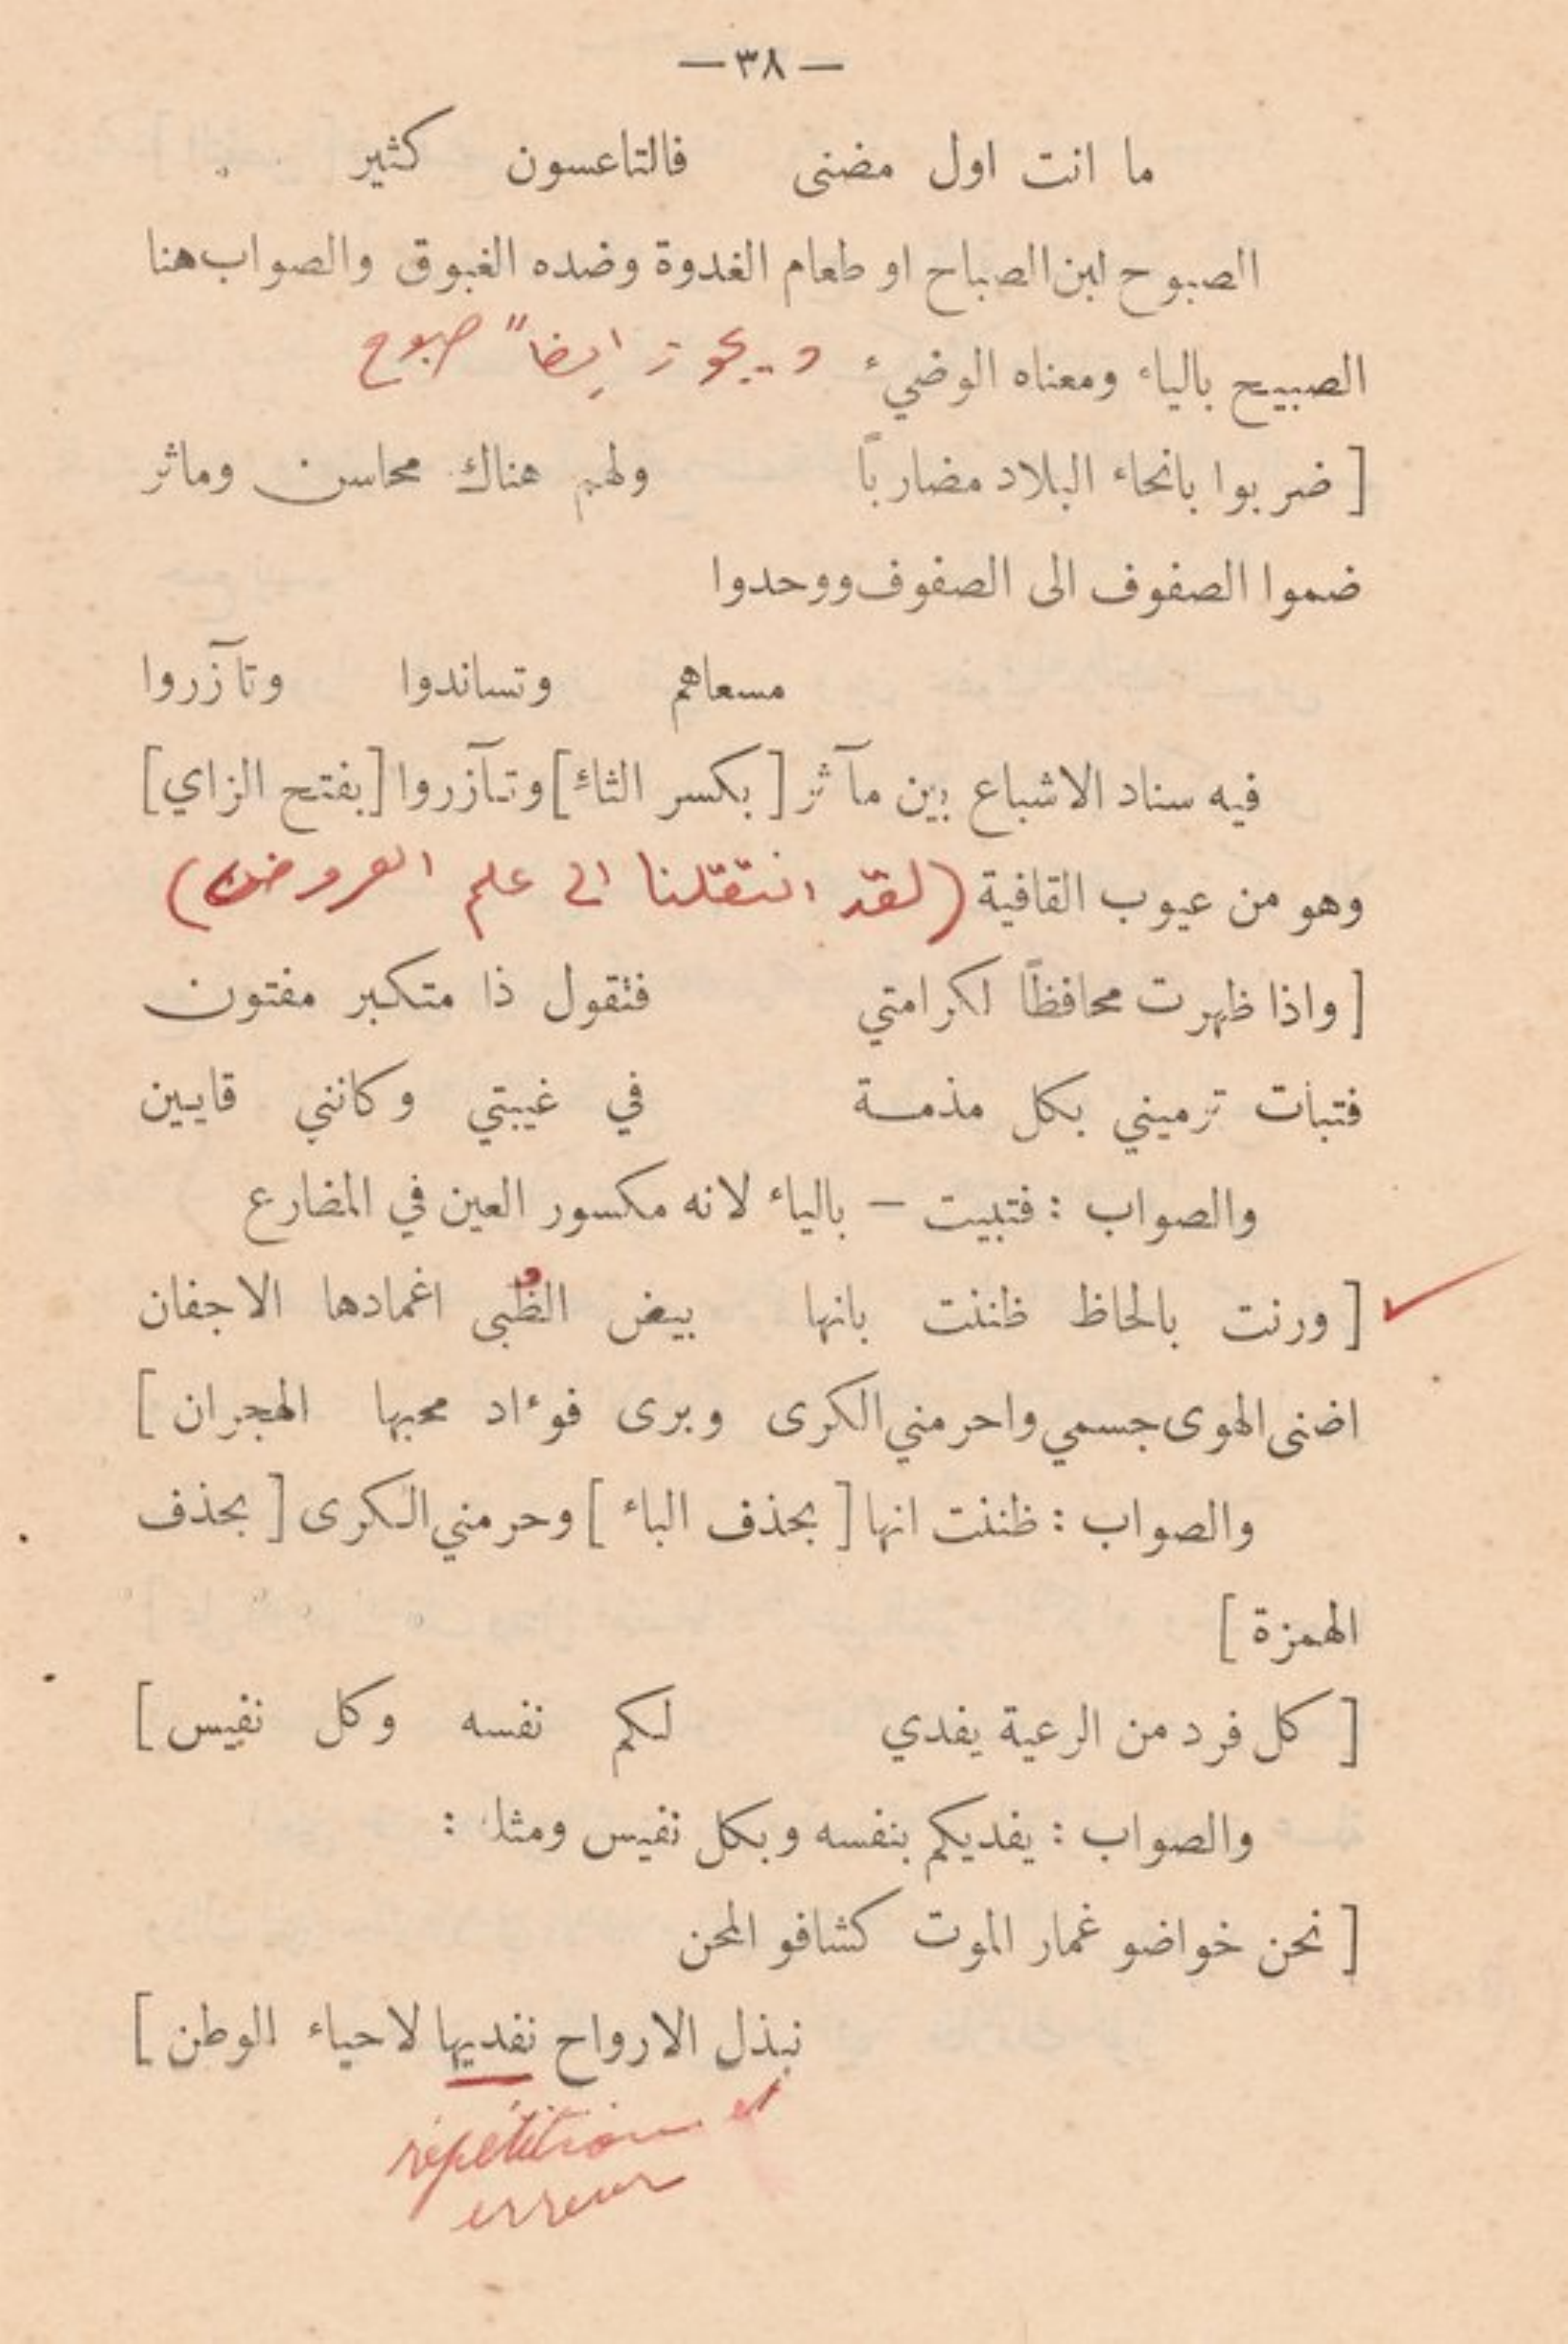 — ٣٨ —
ما انت اول مضنى فالتاعسون كثير
الصبوح لبن الصباح او طعام الغدوة وضده الغبوق والصواب هنا
الصبيح بالياء ومعناه الوضيء ويجوز ايضاً صبوح
[ ضربوا بانحاء البلاد مضارباً ولهم هناك محاسن وماثر
ضموا الصفوف الى الصفوف ووحدوا
مسعاهم وتساندوا وتآزروا
فيه سناد الاشباع بين مآثر [ بكسر الثاء ] وتآزروا [ بفتح الزاي ]
وهو من عيوب القافية (لقد انتقلنا الى علم العروض)
[ واذا ظهرت محافظاً لكرامتي فتقول ذا متكبر مفتون
فتبات ترميني بكل مذمة في غيبتي وكانني قايين
والصواب : فتبيت – بالياء لانه مكسور العين في المضارع
[ ورنت بالحاظ ظننت بانها بيض الظُبى اغمادها الاجفان
اضنى الهوى جسمي واحرمني الكرى وبرى فوءاد محبها الهجران ]
والصواب : ظننت انها [ بحذف الباء ] وحرمني الكرى [ بحذف
الهمزة ]
[ كل فرد من الرعية يفدي لكم نفسه وكل نفيس ]
والصواب : يفديكم بنفسه وبكل نفيس ومثله :
[ نحن خواضو غمار الموت كشافو المحن
نبذل الارواح نفديها لاحياء الوطن ]
répétition et
erreur